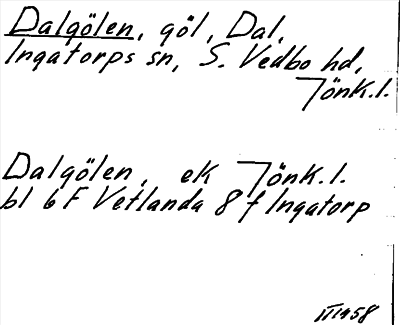 Dalgölen, göl, Dal,
Ingatorps sn, S. Vedbo hd,
Jönk.l.
Dalgölen, ek Jönk.l.
bl 6F Vetlanda 8 f Ingatorp
1958